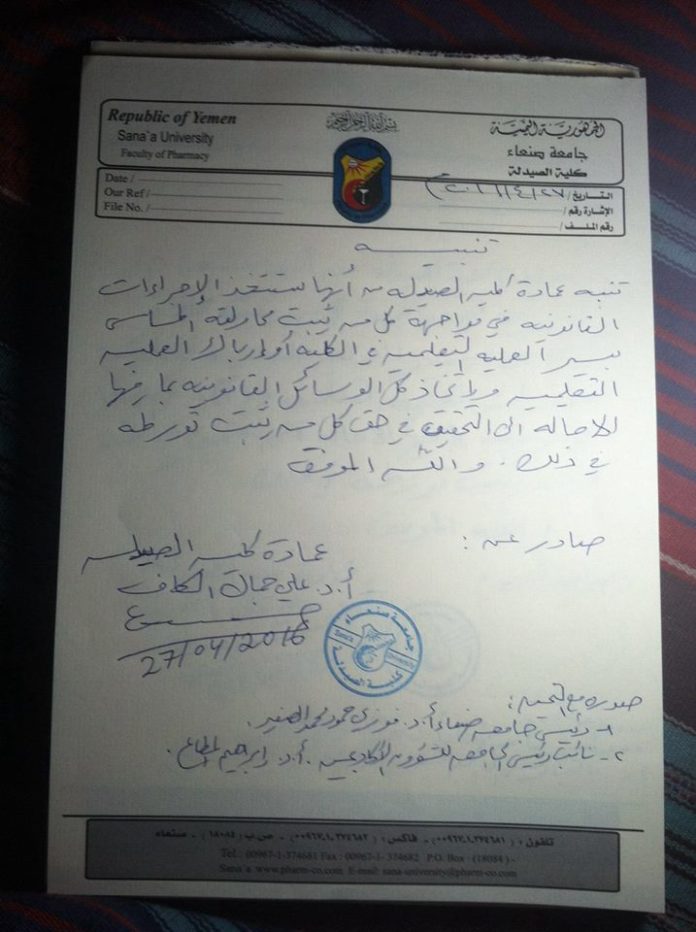 Republic of Yemen
Sana`a University
Faculty of Pharmacy
Date /
Our Ref /
File No. /
بسم الله الرحمن الرحيم
الجمهورية اليمنية
جامعة صنعاء
كلية الصيدلة
التاريخ / ٢٠١٦/٤/٢٧
الإشارة رقم /
رقم الملف /
تنبيه
تنبه عمادة كلية الصيدله من أنها ستتخذ الإجراءات
القانونيه في مواجهة كل من يثبت محاولته المساس
بسير العمليه التعليميه في الكليه أو إرباك العمليه
التعليميه وباتخاذ كل الوسائل القانونيه بما فيها
الاحاله الى التحقيق في حق كل من يثبت تورطه
في ذلك . والله الموفق
صادر عن :
عمادة كليه الصيدله
أ.د. علي جمال الكاف
27/04/2016
جامعة صنعاء
Sana'a University
كلية الصيدلة
صوره مع التحيه :
١- رئيس جامعه صنعاء أ.د. فوزي حمود محمد الصغير .
٢- نائب رئيس الجامعه للشؤون الأكاديميه . أ.د. إبراهيم المطاع .
تلفون : (٠٠٩٦٧.١.٣٧٤٦٨١) - فاكس : (٠٠٩٦٧.١.٣٧٤٦٨٢) - ص.ب: (١٨٠٨٤) - صنعاء
Tel.: 00967-1-374681 Fax : 00967-1- 374682 P.O. Box : (18084 ) -
Sana`a www.pharm-co.com E-mail: sana-university@pharm-co.com